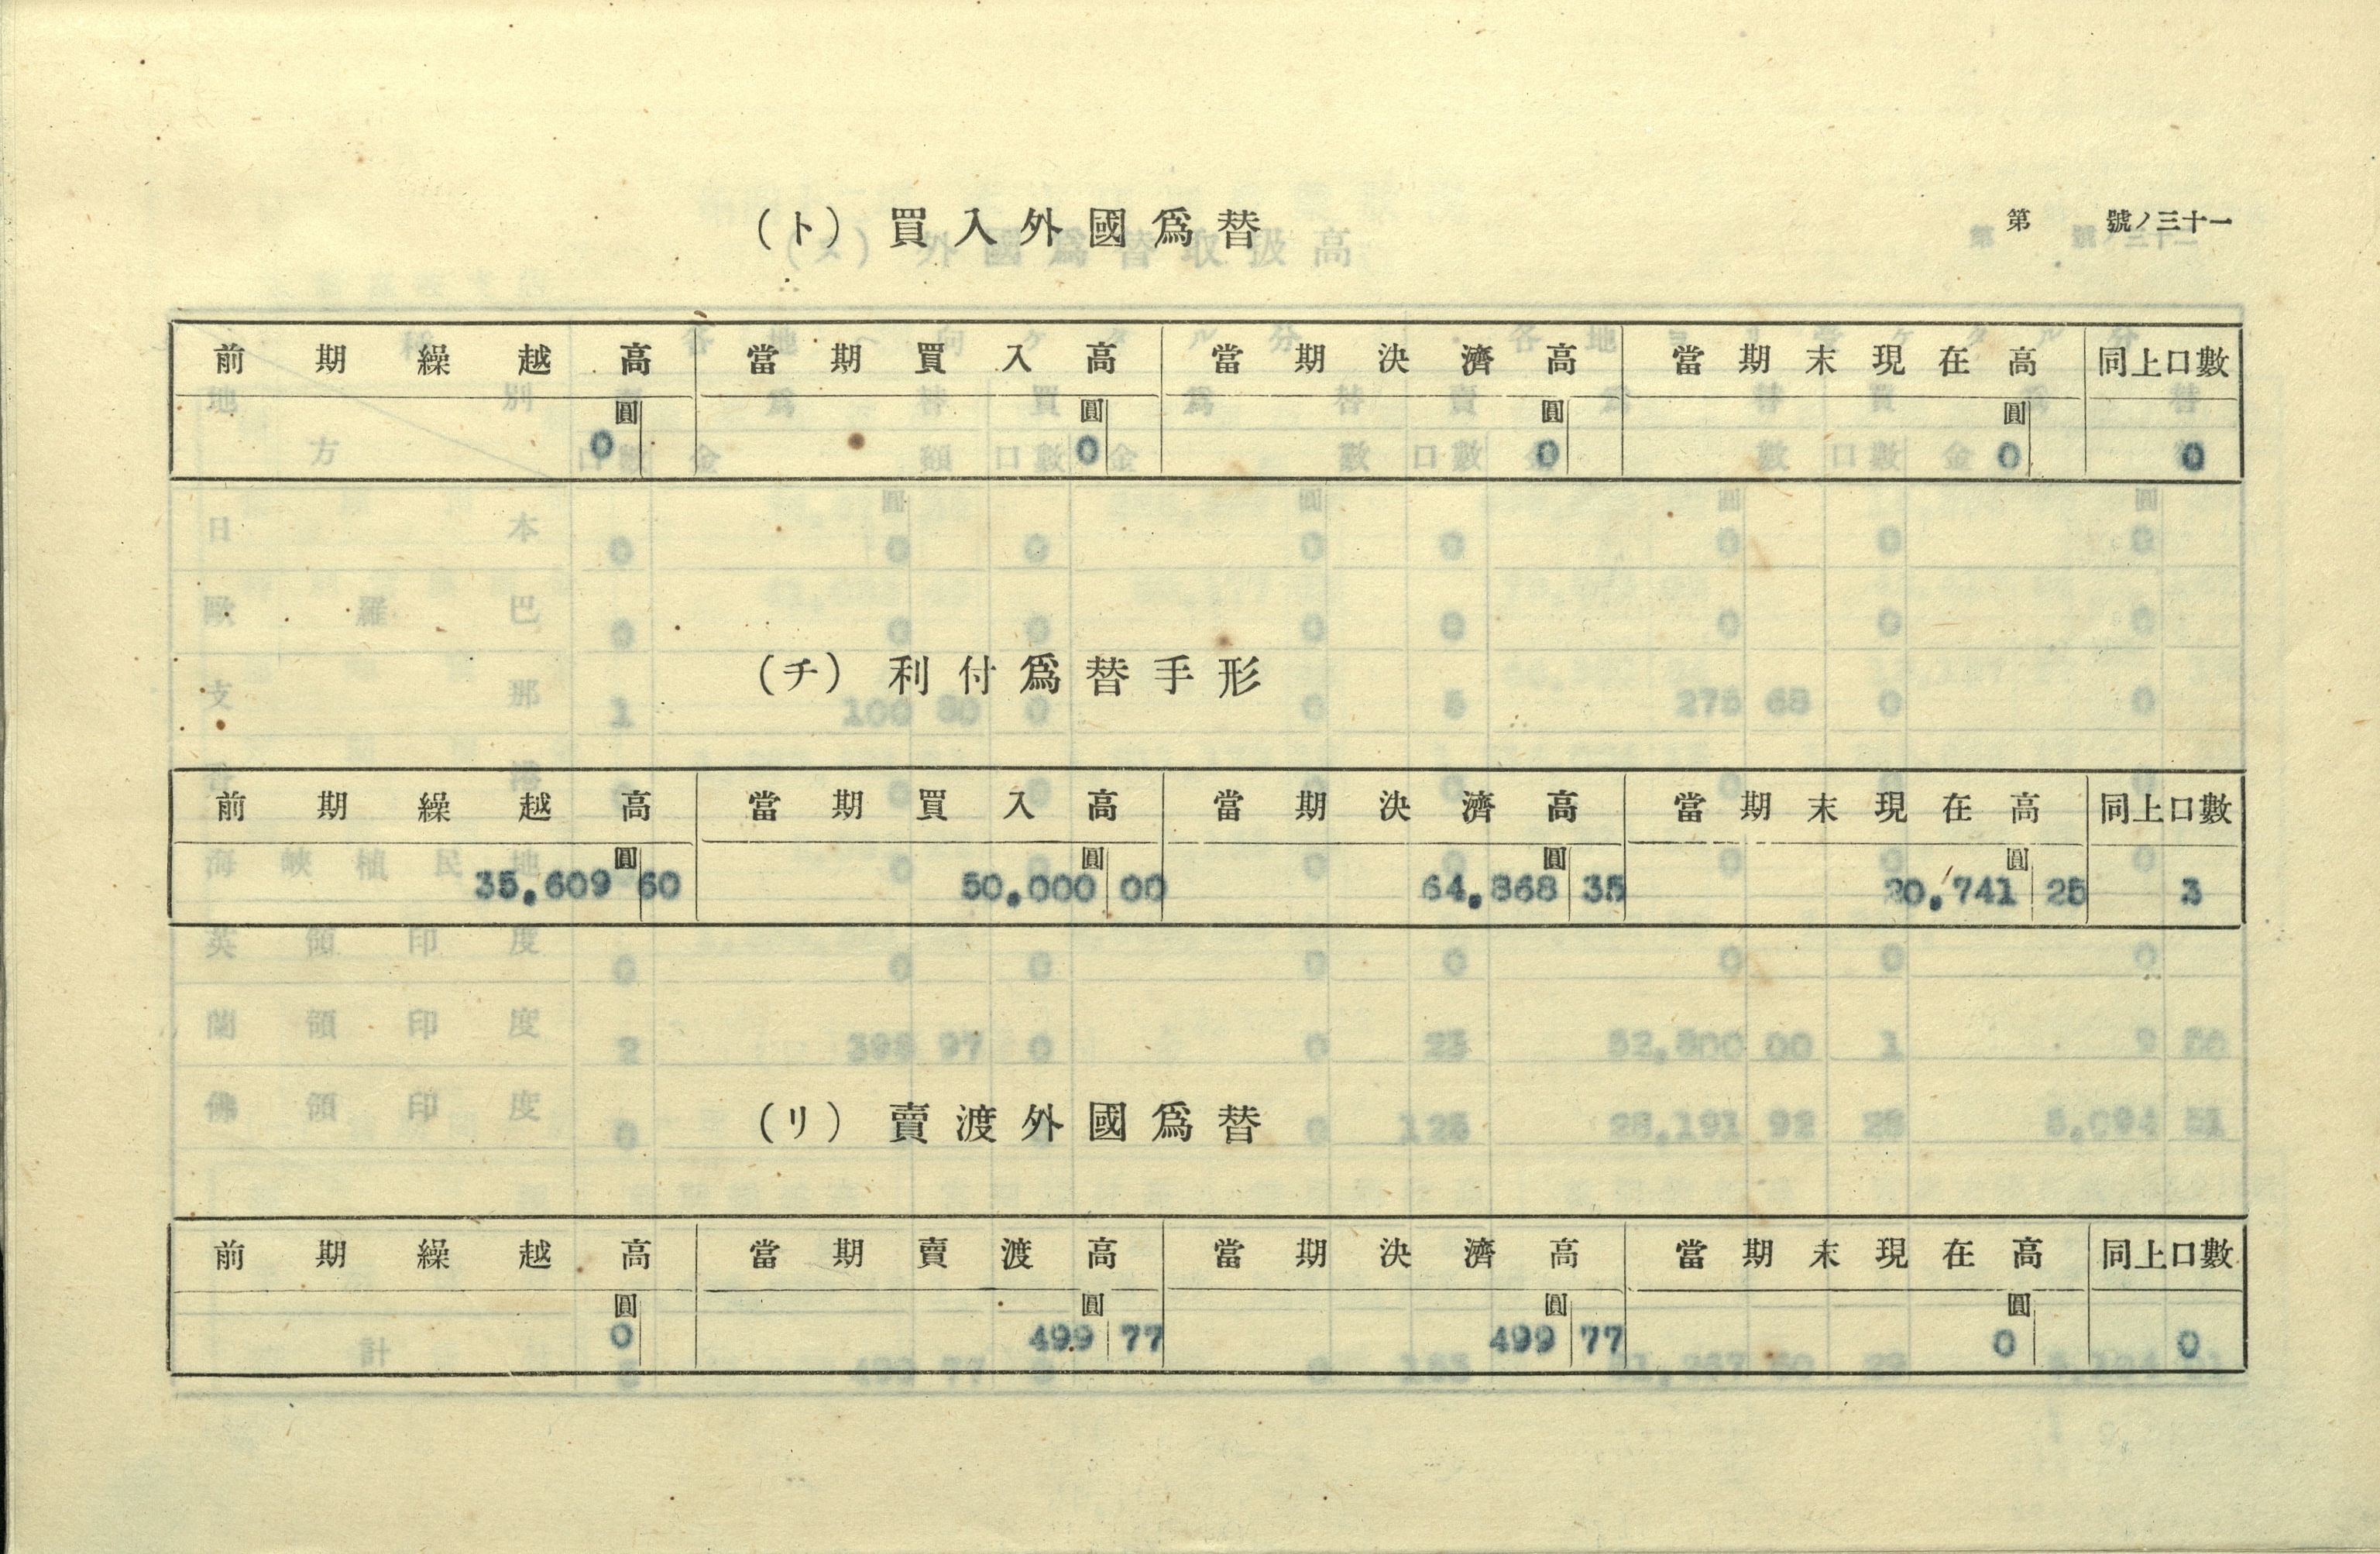 (ト) 買入外國爲替
第 號ノ三十一
前期繰越高 當期買入高 當期決濟高 當期末現在高 同上口數
圓 圓 圓 圓
0 0 0 0 0
(チ) 利付爲替手形
前期繰越高 當期買入高 當期決濟高 當期末現在高 同上口數
圓 圓 圓 圓
35,609 60 50,000 00 64,868 35 20,741 25 3
(リ) 賣渡外國爲替
前期繰越高 當期賣渡高 當期決濟高 當期末現在高 同上口數
圓 圓 圓 圓
0 499 77 499 77 0 0